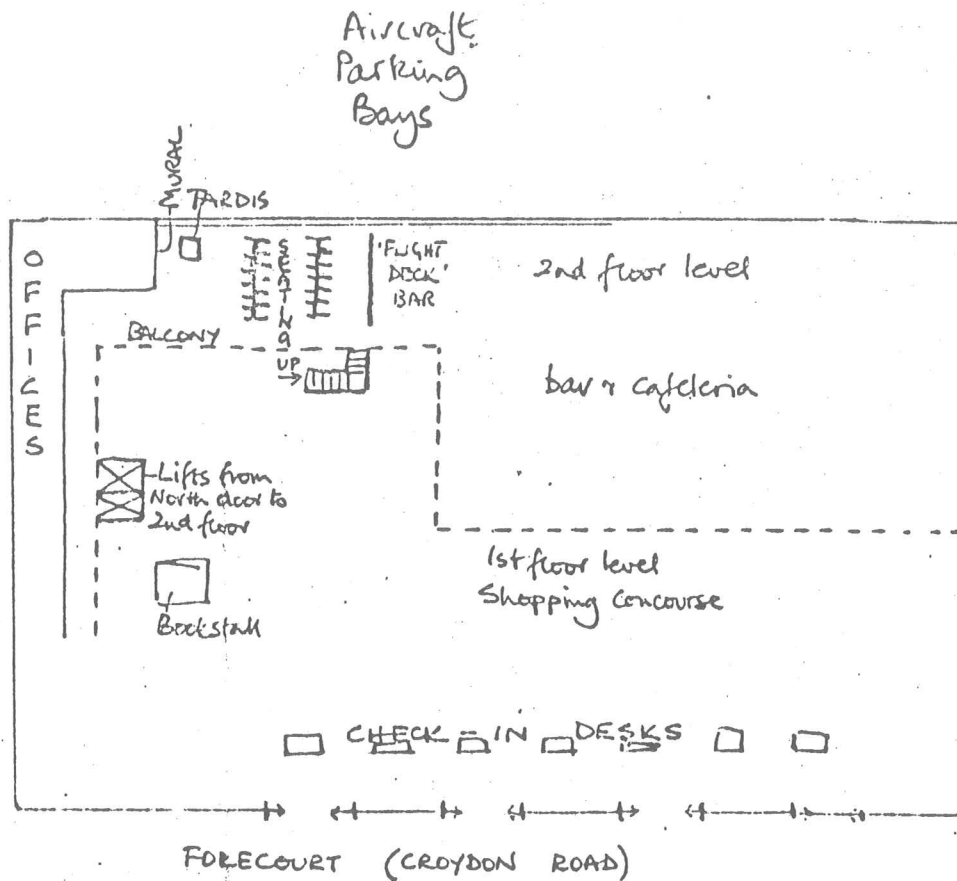 Aircraft
Parking
Bays
MURAL
TARDIS
OFFICES
SEATING
'FLIGHT
DECK'
BAR
2nd floor level
BALCONY
UP
bar & cafeteria
Lifts from
North door to
2nd floor
1st floor level
Shopping Concourse
Bookstall
CHECK-IN DESKS
FORECOURT (CROYDON ROAD)